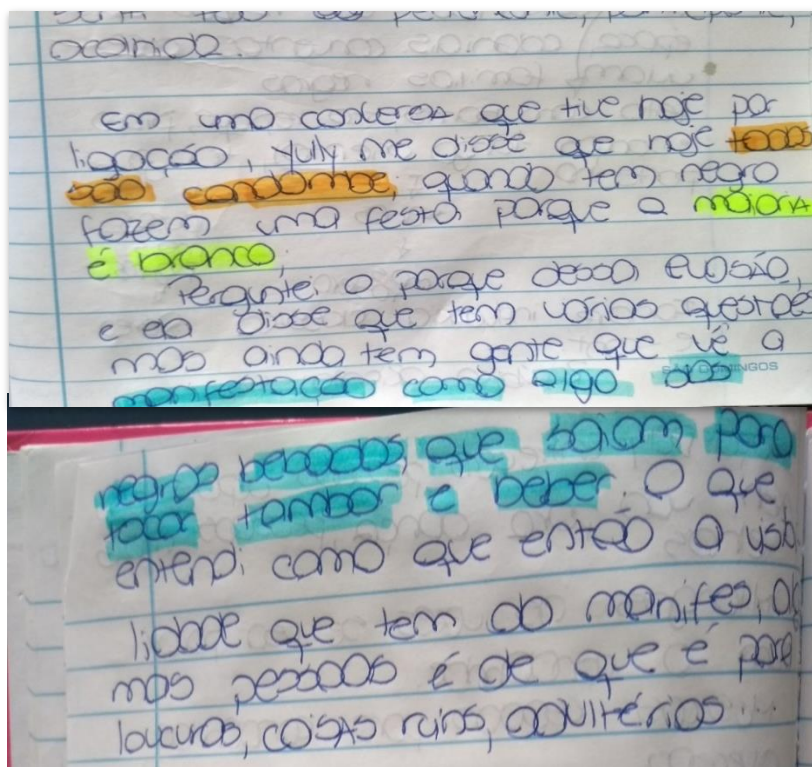 ocorrida.
Em uma conversa que tive hoje por
ligação, Yuly me disse que hoje todos
são candombe, quando tem negro
fazem uma festa porque a maioria
é branco,
Perguntei o porque dessa evosão,
e ela disse que tem vários questões
mas ainda tem gente que vê a
SÃO DOMINGOS
manifestação como algo dos
negros bebados, que saiam para
tocar tambor e beber. O que
entendi como que então a visto
lidade que tem do manifes, al
mas pessoas é de que é para
loucuras, coisas ruins, adultérios...